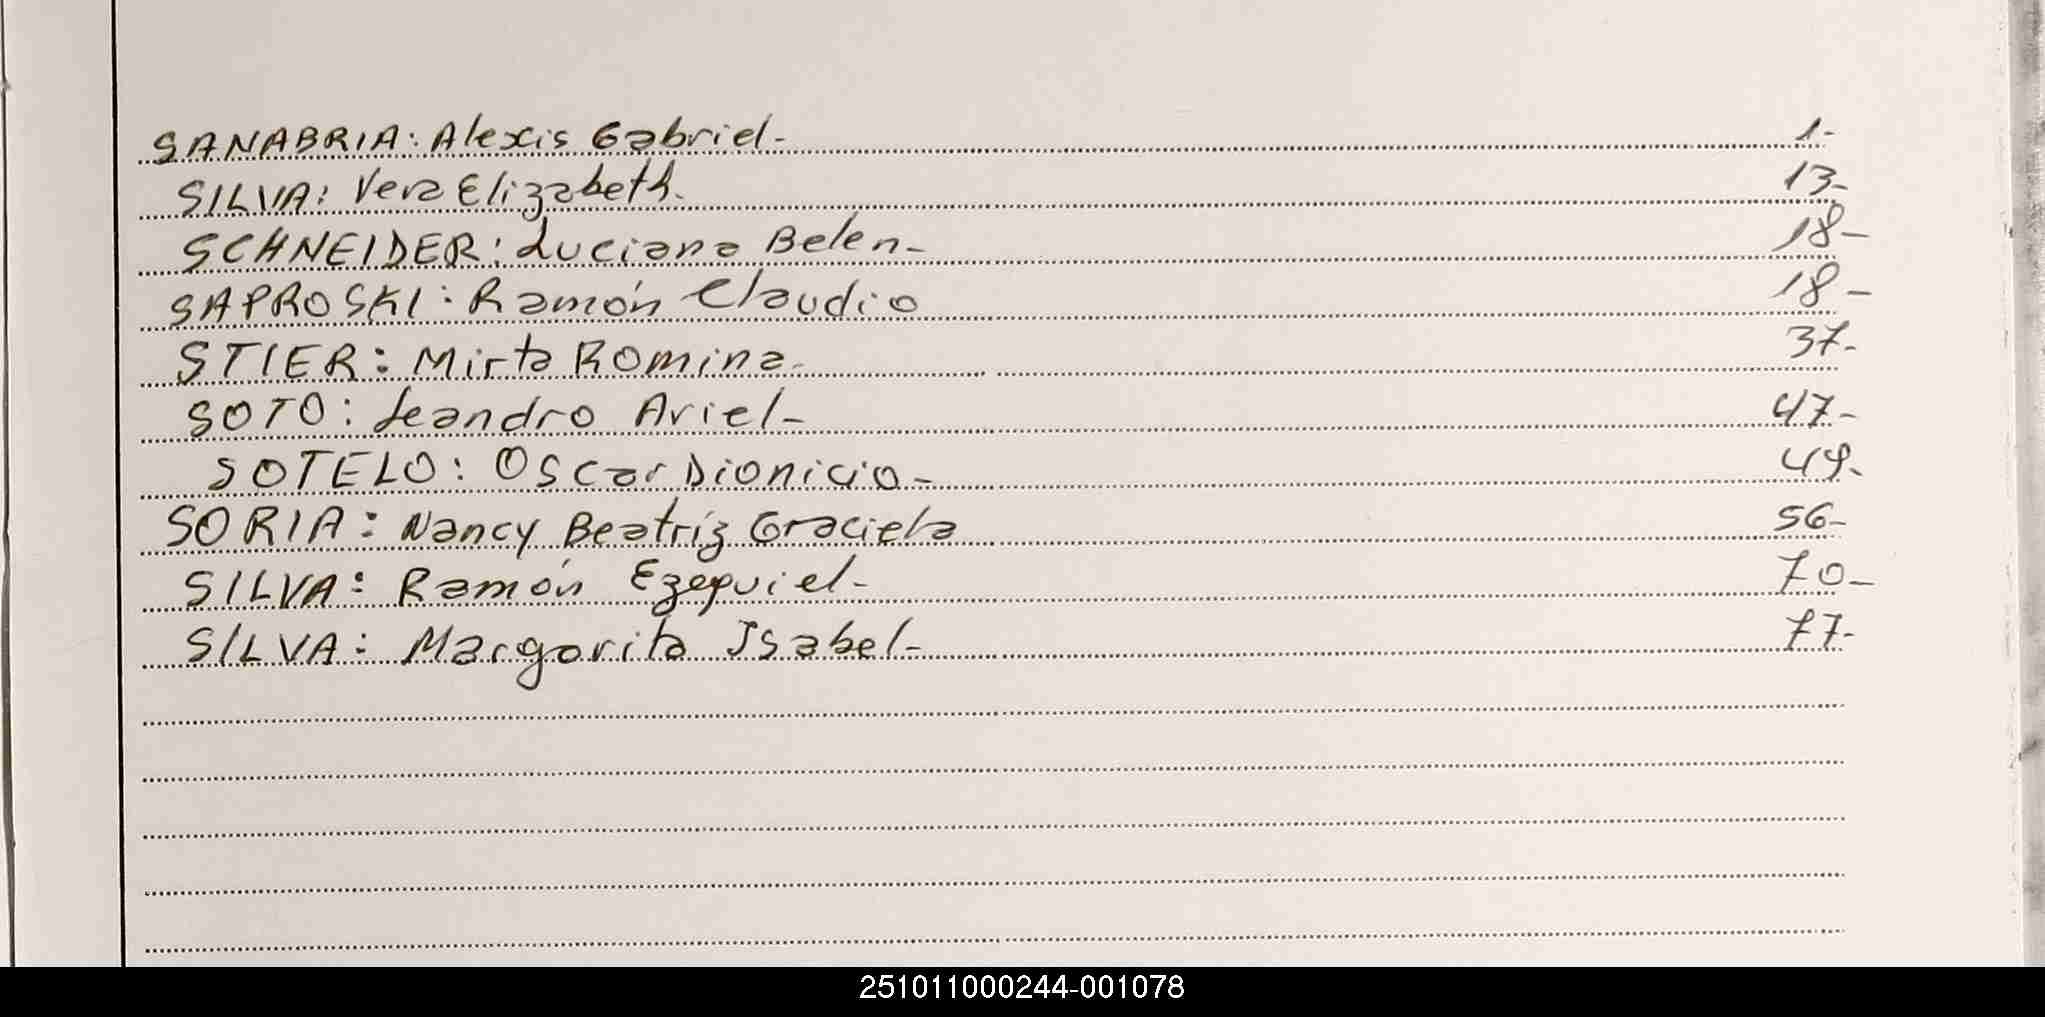 SANABRIA: Alexis Gabriel- 1-
SILVA: Vera Elizabeth. 13-
SCHNEIDER: Luciana Belen- 18-
SAPROSKI: Ramón Claudio 18-
STIER: Mirta Romina- 37-
SOTO: Leandro Ariel- 47-
SOTELO: Oscar Dionicio- 49-
SORIA: Nancy Beatríz Graciela 56-
SILVA: Ramón Ezequiel- 70-
SILVA: Margarita Isabel- 77-
251011000244-001078